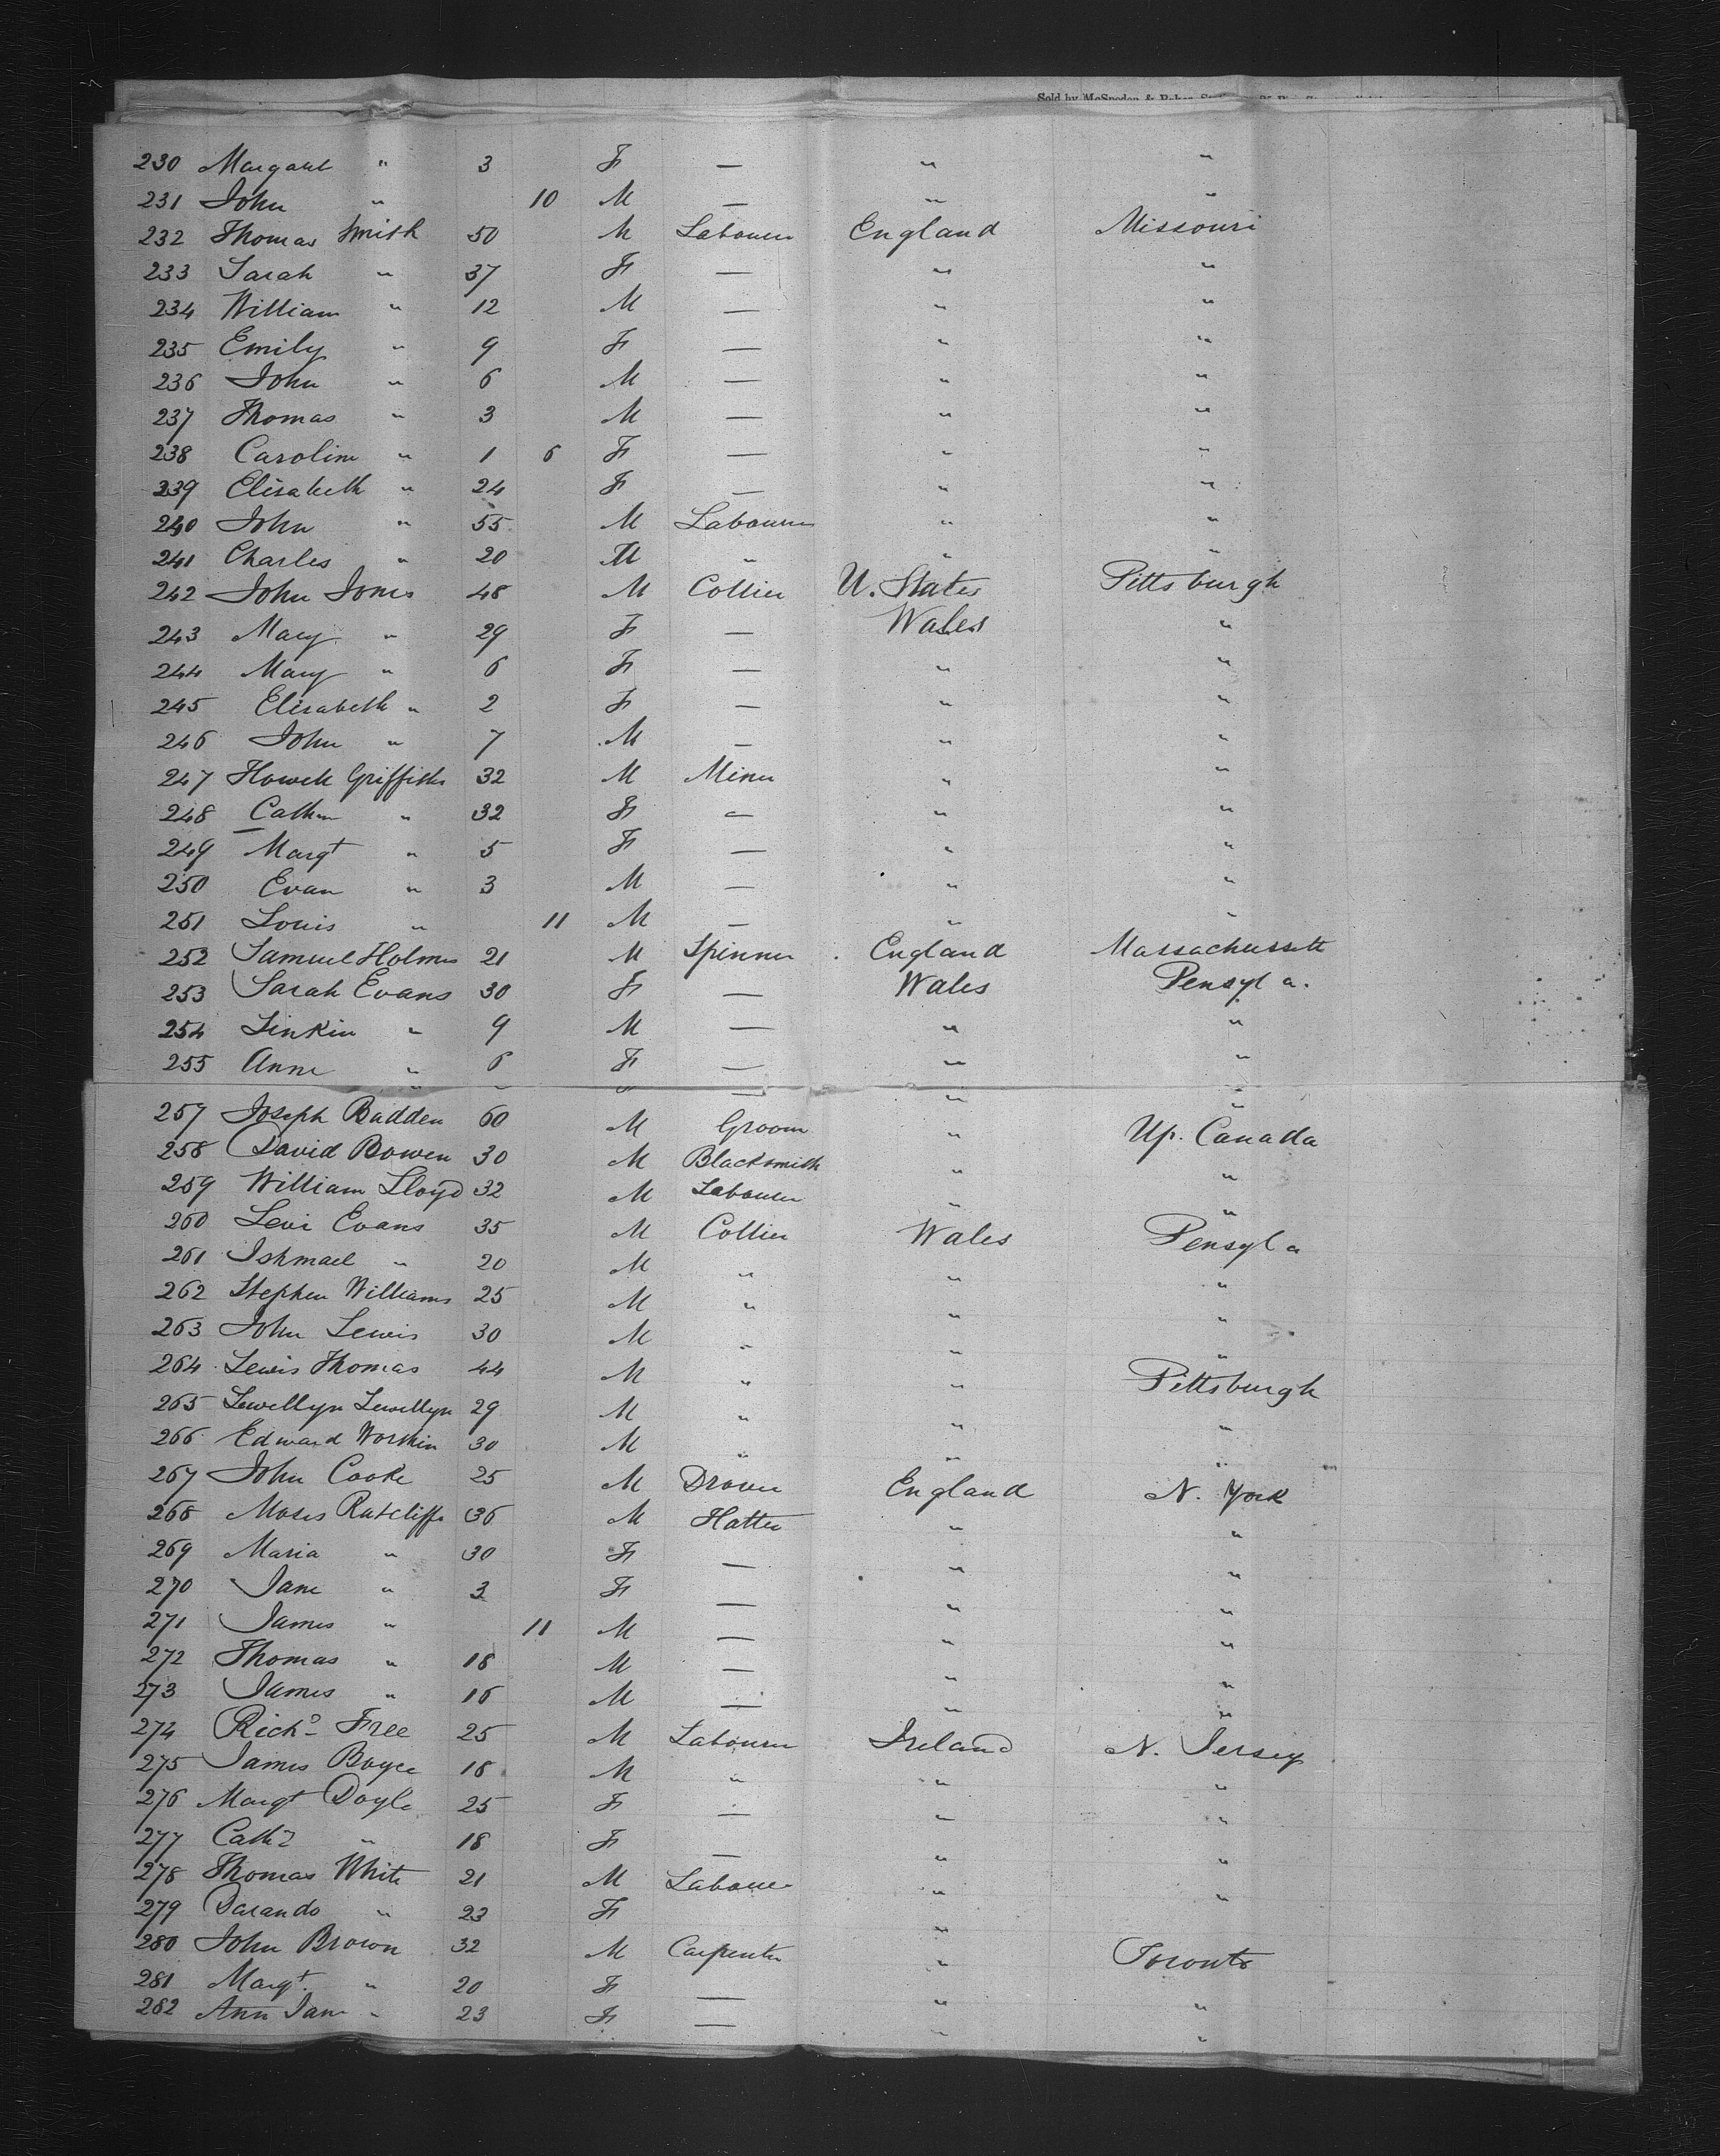 Sold by McSpedon & Baker, Stationers
230 Margaret " 3 F — " "
231 John " 10 M — " "
232 Thomas Smith 50 M Labourer England Missouri
233 Sarah " 37 F — " "
234 William " 12 M — " "
235 Emily " 9 F — " "
236 John " 6 M — " "
237 Thomas " 3 M — " "
238 Caroline " 1 6 F — " "
239 Elisabeth " 24 F — " "
240 John " 55 M Labourer " "
241 Charles " 20 M " " "
242 John Jones 48 M Collier U. States Pittsburgh
243 Mary " 29 F — Wales "
244 Mary " 6 F — " "
245 Elisabeth " 2 F — " "
246 John " 7 M — " "
247 Howell Griffiths 32 M Miner " "
248 Cathn " 32 F — " "
249 Margt " 5 F — " "
250 Evan " 3 M — " "
251 Louis " 11 M — " "
252 Samuel Holmes 21 M Spinner England Massachusett
253 Sarah Evans 30 F — Wales Pensyl a.
254 Jinkin " 9 M — " "
255 Anne " 6 F — " "
" " — " "
257 Joseph Badden 60 M Groom " Up. Canada
258 David Bowen 30 M Blacksmith " "
259 William Lloyd 32 M Labourer " "
260 Levi Evans 35 M Collier Wales Pensyl a
261 Ishmael " 20 M " " "
262 Stephen Williams 25 M " " "
263 John Lewis 30 M " " "
264 Lewis Thomas 44 M " " Pittsburgh
265 Lewellyn Lewellyn 29 M " " "
266 Edward 30 M " " "
267 John Cooke 25 M Drover England N. York
268 Moses Ratcliffe 36 M Hatter " "
269 Maria " 30 F — " "
270 Jane " 3 F — " "
271 James " 11 M — " "
272 Thomas " 18 M — " "
273 James " 16 M — " "
274 Richd Free 25 M Labourer Ireland N. Jersey
275 James Boyce 18 M " " "
276 Margt Doyle 25 F — " "
277 Cath " 18 F — " "
278 Thomas White 21 M Labourer " "
279 " 23 F "
280 John Brown 32 M Carpenter " Toronto
281 Margt. " 20 F — " "
282 Ann Jane " 23 F — " "